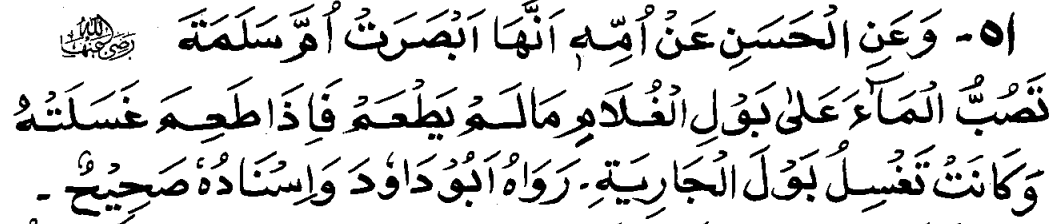 ٥١- وَعَنِ الْحَسَنِ عَنْ اُمِّهٖ اَنَّهَا اَبْصَرَتْ اُمَّ سَلَمَةَ رضی اللہ عنہا
تَصُبُّ الْمَآءَ عَلٰى بَوْلِ الْغُلَامِ مَالَمْ يَطْعَمْ فَاِذَا طَعِمَ غَسَلَتْهُ
وَكَانَتْ تَغْسِلُ بَوْلَ الْجَارِيَةِ۔ رَوَاهُ اَبُوْ دَاوٗدَ وَاِسْنَادُهٗ صَحِيْحٌ۔